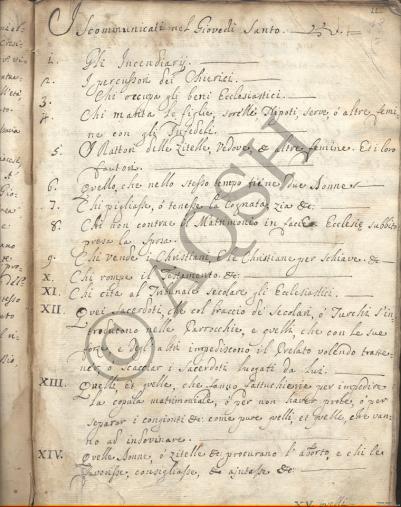 Iscommunicati nel Giovedi Santo.
1. Gli Incendiarij.
2. I percussori dei Chierici.
3. Chi occupa gli beni Ecclesiastici.
4. Chi marita le figlie, sorelle Nipoti, serve, ó altre femi-
ne con gli Infedeli.
5. I Rattori delle zitelle, vedove, & altre femine. Et i loro
fautori.
6. Quello, che nello stesso tempo tiene due Donne
7. Chi pigliasse, ó tenesse la Cognata, zia &c.
8. Chi non contrae il Matrimonio in facie Ecclesię subbito
presa la Sposa.
9. Chi vende i Christiani, le Christiane per schiave. &c
X. Chi rompe il Testamento. &c
XI. Chi cita al Tribunale secolare gli Ecclesiastici.
XII. Quei Sacerdoti, che col braccio di Secolari, ó Turchi s'in-
troducono nelle Parrocchie, e quelli che con le sue
forze, ó d'altri impediscono il Prelato volendo trasme-
ter, ó scacciar i Sacerdoti
XIII. Quelli, et quelle, che fanno fattuchierie per impedire
la copula matrimoniale, ó per non haver prole, ó per
separar i congionti &c come pure quelli, et quelle, che van-
no ad indovinare.
XIV. Quelle Donne, ó zitelle &c procurano l'aborto, e chi le
consigliasse, & ajutasse &c
XV. quelli
© AQSH